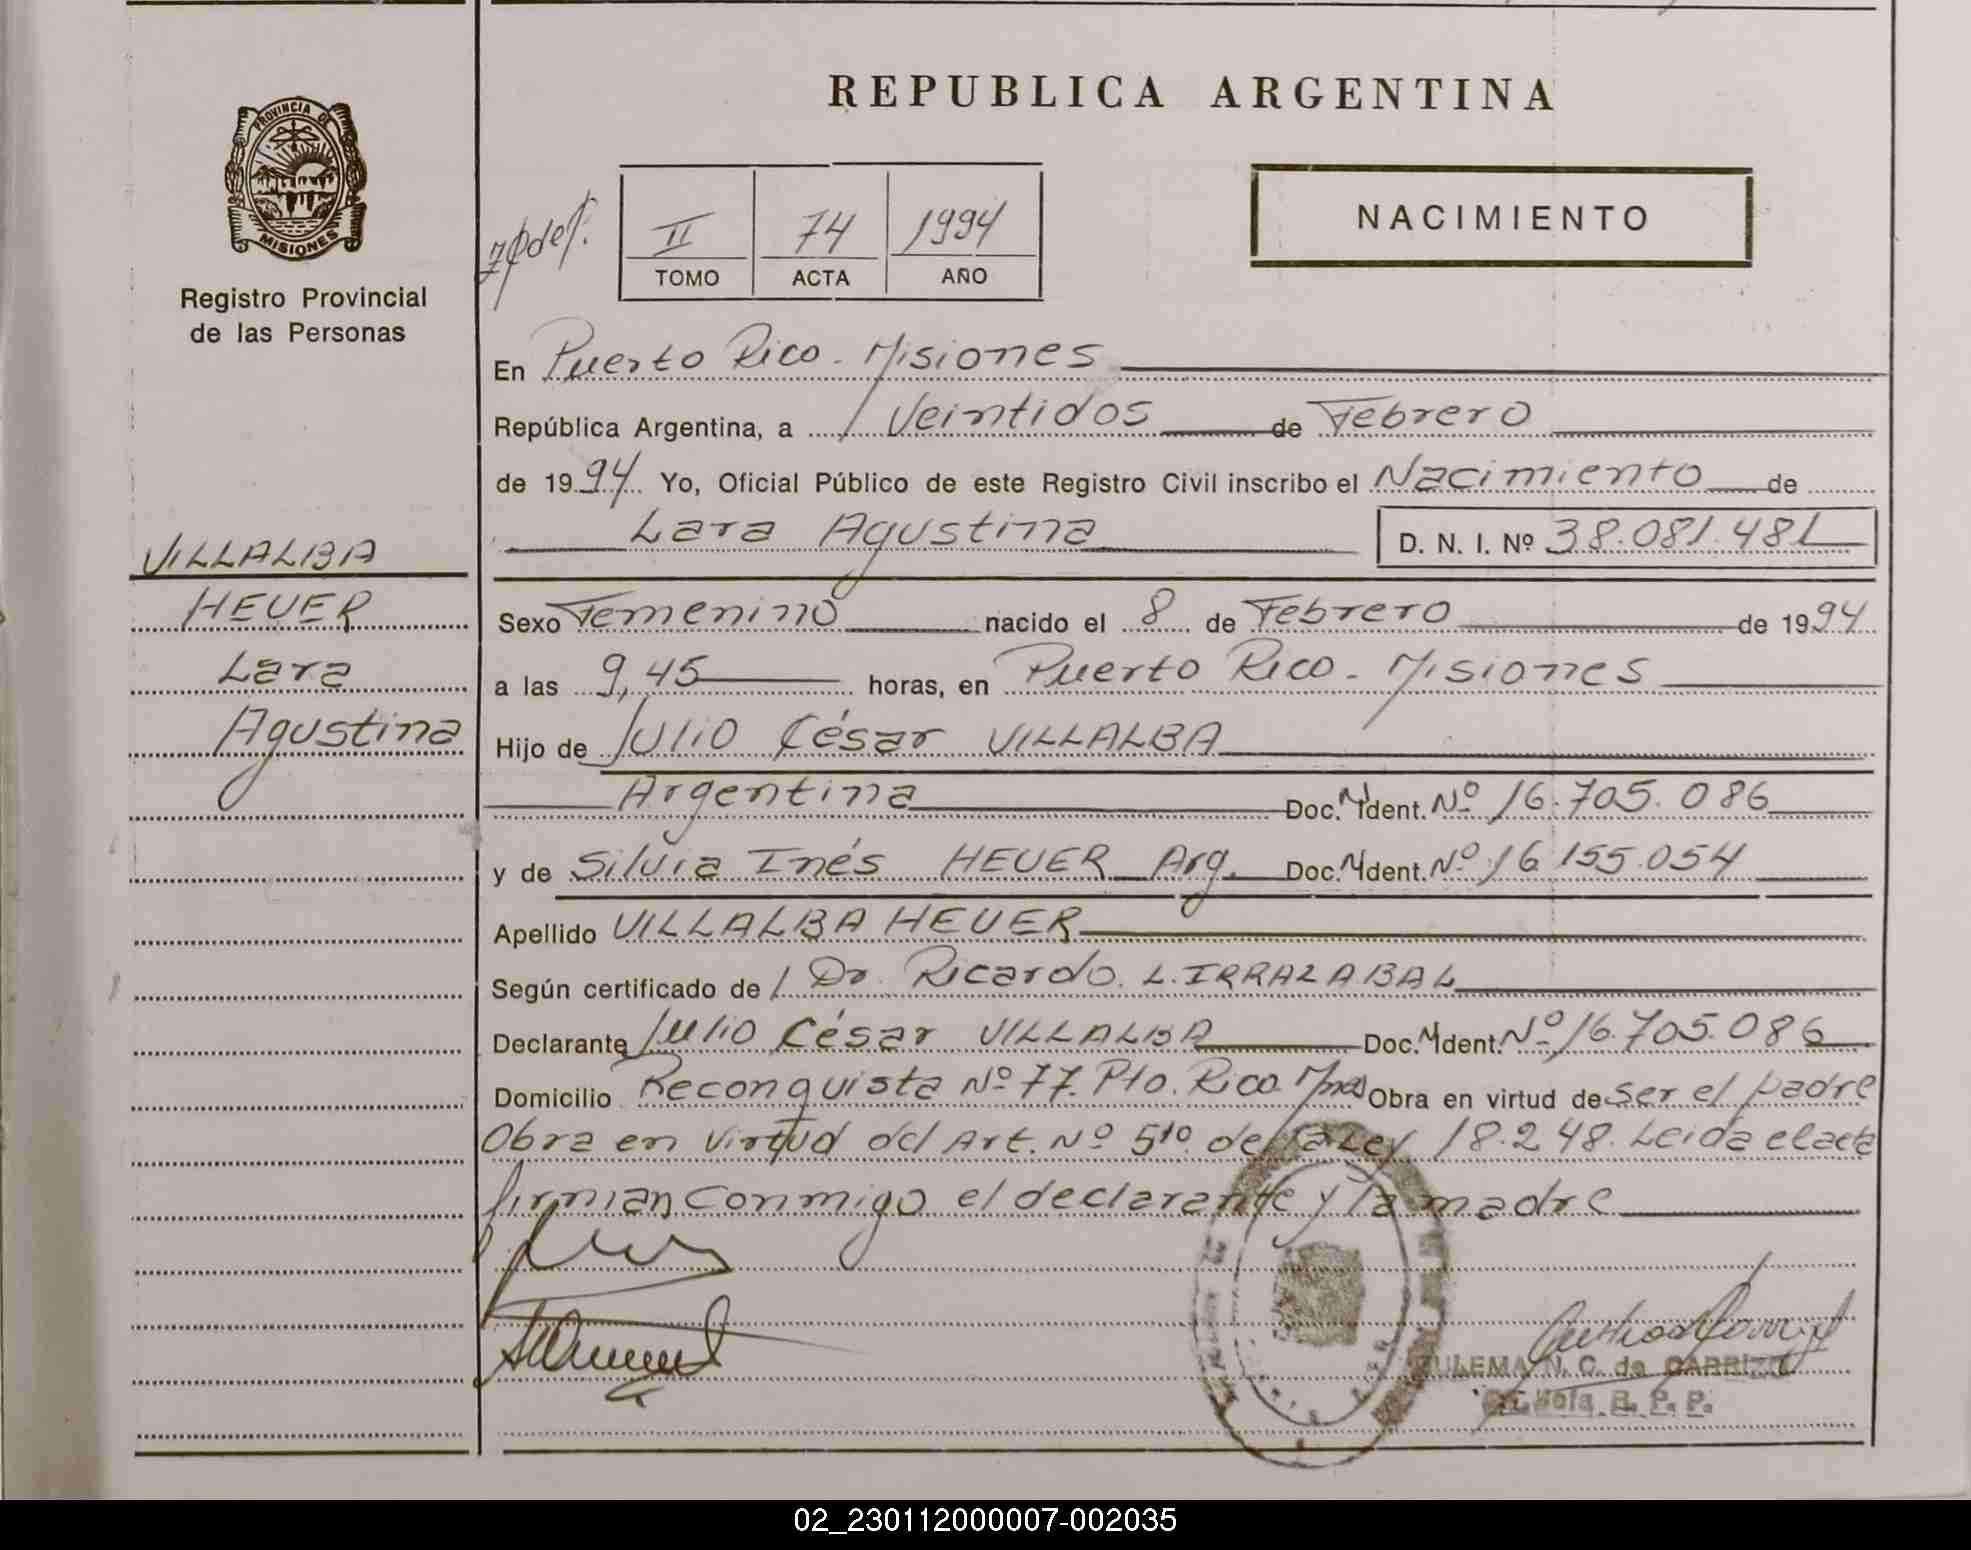 REPUBLICA ARGENTINA
PROVINCIA DE
MISIONES
Registro Provincial
de las Personas
II 74 1994
TOMO ACTA AÑO
NACIMIENTO
En Puerto Rico - Misiones
República Argentina, a Veintidos de Febrero
de 1994 Yo, Oficial Público de este Registro Civil inscribo el Nacimiento de
Lara Agustina D. N. I. Nº 38.081.481
VILLALBA
HEUER
Lara
Agustina
Sexo Femenino nacido el 8 de Febrero de 1994
a las 9,45 horas, en Puerto Rico - Misiones
Hijo de Julio César VILLALBA
Argentina Doc. N Ident. Nº 16.705.086
y de Silvia Inés HEUER Arg. Doc. N Ident. Nº 16 155.054
Apellido VILLALBA HEUER
Según certificado de Dr. Ricardo L. IRRAZABAL
Declarante Julio César VILLALBA Doc. N Ident. Nº 16.705.086
Domicilio Reconquista Nº 77. Pto. Rico Mnes Obra en virtud de ser el padre
Obra en virtud del Art. Nº 5to. de la Ley 18.248. Leida el acta
firman conmigo el declarante y la madre
ULEMA N. C. de CARRIZO
R. P. P.
02_230112000007-002035